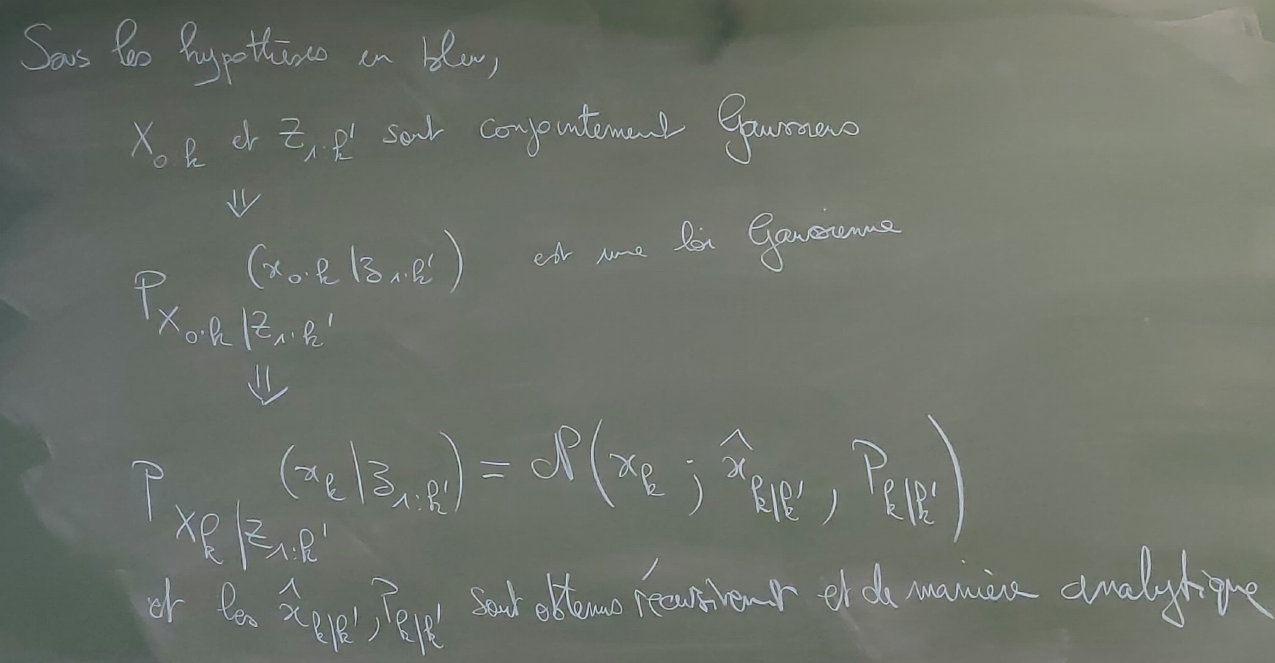 Sous les hypothèses en bleu,
X_{0:k} et Z_{1:k'} sont conjointement Gaussiens
⇓
P_{X_{0:k}|Z_{1:k'}} (x_{0:k}|z_{1:k'}) est une loi Gaussienne
⇓
P_{X_k|Z_{1:k'}} (x_k|z_{1:k'}) = N(x_k ; x̂_{k|k'}, P_{k|k'})
et les x̂_{k|k'}, P_{k|k'} sont obtenus récursivement et de manière analytique